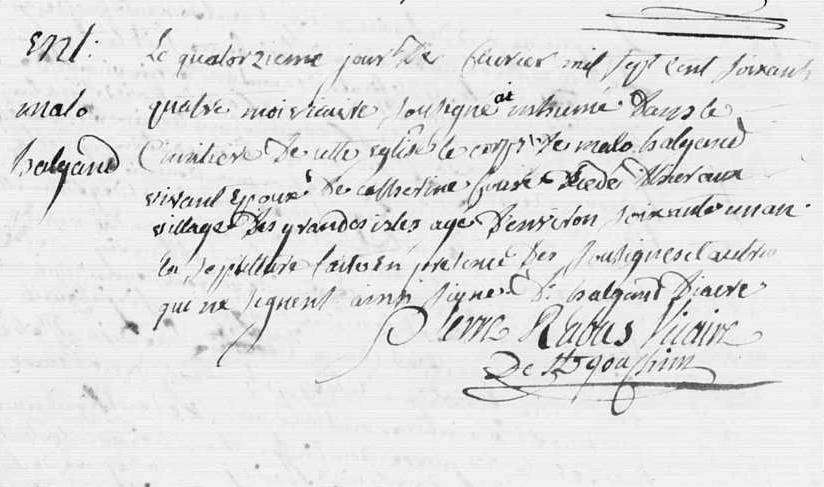 Ent:
malo
halgand
Le quatorzieme jour De fevrier mil sept cent soixante
quatre moi vicaire soussigné ai inhumé dans le
Cimitiere De cette eglise le corps De malo halgand
vivant epoux De catherine Decedé d'hier aux
village Des grandes isles agé D'environ soixante un an
la sepulture faite en presence Des soussignes et autres
qui ne signent ainsi signé D. halgand Diacre
Pierre Vicaire
De St Gouachim